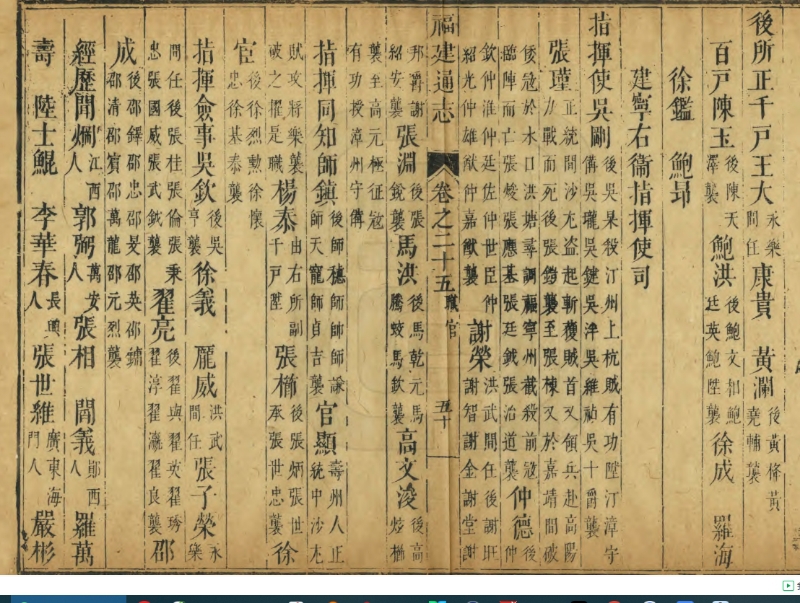 後所正千戶王大永樂間任 康貴 黃瀾後黃條黃堯輔襲
百戶陳玉後陳天澤襲 鮑洪後鮑文和鮑廷英鮑陞襲 徐成 羅海
徐鑑 鮑昂
建寧右衛指揮使司
指揮使吳剛後吳杲殺汀州上杭賊有功陞汀漳守備吳瓏吳鍵吳泮吳維禎吳十爵襲
張瑾正統間沙尤盗起斬獲賊首又領兵赴高陽力戰而死後張鎧襲至張棟又於嘉靖間破
倭寇於水口洪塘尋調福寧州截殺前寇臨陣而亡張焌張應基張廷鉞張治道襲 仲德後仲
欽仲淮仲廷佐仲世臣仲紹光仲雄猷仲嘉猷襲 謝榮洪武間任後謝旺謝智謝金謝堂謝
福建通志 卷之二十五 職官 五十
邦爵謝紹安襲 張淵後張銳襲 馬洪後馬乾元馬騰蛟馬欽襲 高文凌後高烶楢
襲至高元極征寇有功授漳州守備
指揮同知師鎮後師德師師師謙師天寵師貞吉襲 官顯壽州人正統中沙尤
賊攻將樂襲破之擢是職 楊泰由右所副千戶陞 張櫛後張炳張世承張世忠襲 徐
官後徐烈勲徐懷忠徐基泰襲
指揮僉事吳欽後吳亨襲 徐義 龐威洪武間任 張子榮永樂
間任後張桂張倫張秉忠張國威張武鉞襲 翟亮後翟與翟英翟琇翟淳翟瀛翟良襲 邵
成後邵鐸邵忠邵旻邵英邵鏽邵清邵寳邵萬龍邵元烈襲
經歷聞爛江西人 郭弼萬安人 張相 閻義鄖西人 羅萬
壽 陸士鯤 李華春長興人 張世維廣東海門人 嚴彬